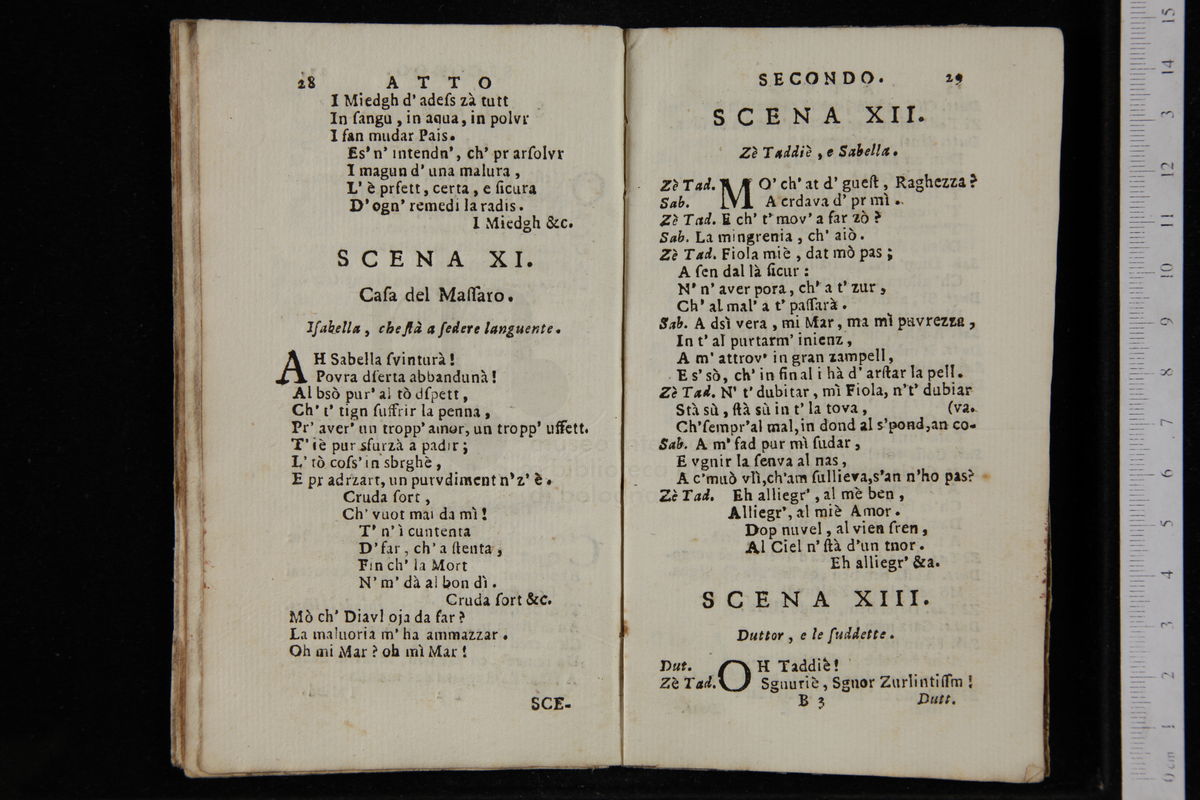 28 ATTO
I Miedgh d' adeſs zà tutt
In ſangu , in aqua, in polvr
I ſan mudar Pais.
Es' n' intendn', ch' pr arſolvr
I magun d' una malura ,
L' è prſett, certa, e ſicura
D' ogn' remedi la radis.
I Miedgh &c.
SCENA XI.
Caſa del Maſſaro.
Iſabella, che ſtà a ſedere languente.
AH Sabella ſvinturà!
Povra dſerta abbandunà!
Al bsò pur' al tò dſpett,
Ch' t' tign ſuffrir la penna,
Pr' aver' un tropp' amor, un tropp' uffett.
T' iè pur sfurzà a padir;
L' tò coſs' in sbrghè,
E pr adrzart, un purvdiment n' z' è.
Cruda ſort,
Ch' vuot mai da mì!
T' n' ì cuntenta
D' far, ch' a ſtenta,
Fin ch' la Mort
N' m' dà al bon dì.
Cruda ſort &c.
Mò ch' Diavl oja da far?
La maluoria m' ha ammazzar.
Oh mi Mar? oh mì Mar!
SCE-
SECONDO. 29
SCENA XII.
Zè Taddiè, e Sabella.
Zè Tad. MO' ch' at d' gueſt, Raghezza?
Sab. A crdava d' pr mì.
Zè Tad. E ch' t' mov' a far zò?
Sab. La mingrenia, ch' aiò.
Zè Tad. Fiola miè, dat mò pas;
A ſen dal là ſicur:
N' n' aver pora, ch' a t' zur,
Ch' al mal' a t' paſſarà.
Sab. A dsì vera, mi Mar, ma mì puvrezza,
In t' al purtarm' inienz,
A m' attrov' in gran zampell,
E s' sò, ch' in fin al i hà d' arſtar la pell.
Zè Tad. N' t' dubitar, mì Fiola, n't' dubiar
Stà sù, ſtà sù in t' la tova, (va.
Ch'ſempr'al mal, in dond al s'pond, an co-
Sab. A m' fad pur mì ſudar,
E vgnir la ſenva al nas,
A c'muò vlì, ch'am ſullieva, s'an n'ho pas?
Zè Tad. Eh alliegr', al mè ben,
Alliegr', al miè Amor.
Dop nuvel, al vien ſren,
Al Ciel n' ſtà d'un tnor.
Eh alliegr' &a.
SCENA XIII.
Duttor, e le ſuddette.
Dut. OH Taddiè!
Zè Tad. Sgnuriè, Sgnor Zurlintiſſm!
B 3 Dutt.